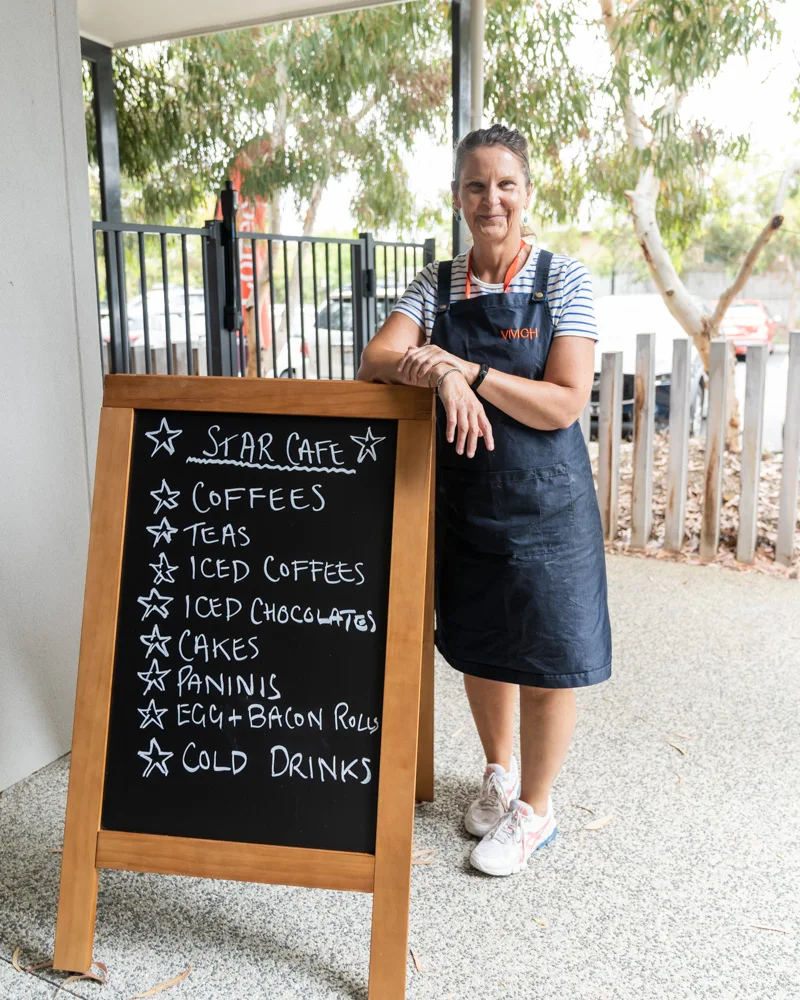 STAR CAFE
COFFEES
TEAS
ICED COFFEES
ICED CHOCOLATES
CAKES
PANINIS
EGG + BACON ROLLS
COLD DRINKS
VMCH